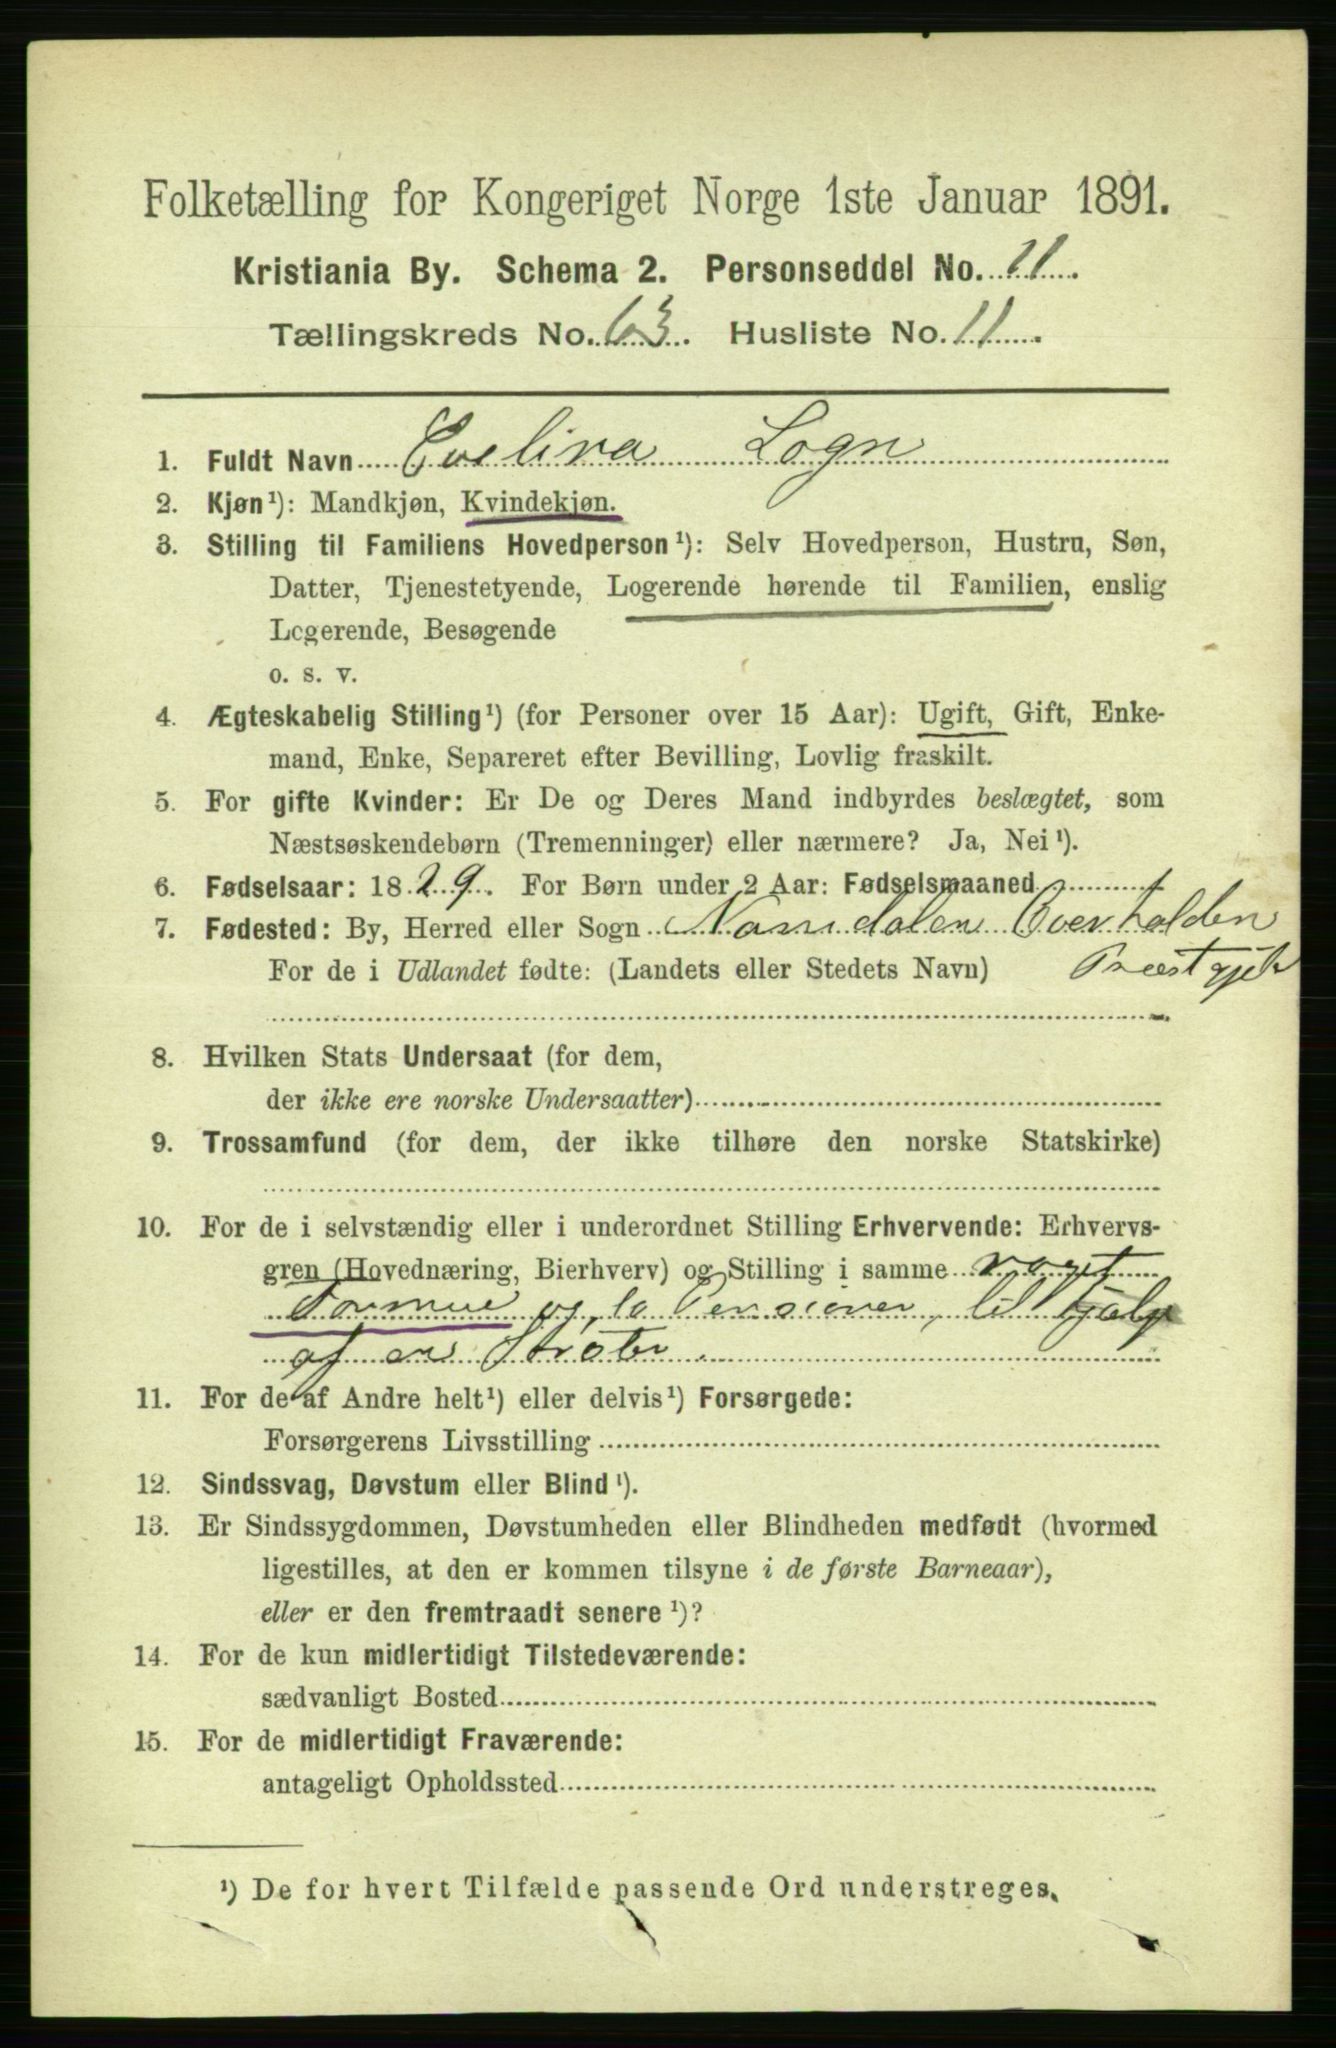 Folketælling for Kongeriget Norge 1ste Januar 1891.
Kristiania By. Schema 2. Personseddel No. 11.
Tællingskreds No. 63. Husliste No. 11.
1. Fuldt Navn Evelina Logn
2. Kjøn¹): Mandkjøn, Kvindekjøn.
3. Stilling til Familiens Hovedperson¹): Selv Hovedperson, Hustru, Søn,
Datter, Tjenestetyende, Logerende hørende til Familien, enslig
Logerende, Besøgende
o. s. v.
4. Ægteskabelig Stilling¹) (for Personer over 15 Aar): Ugift, Gift, Enke-
mand, Enke, Separeret efter Bevilling, Lovlig fraskilt.
5. For gifte Kvinder: Er De og Deres Mand indbyrdes beslægtet, som
Næstsøskendebørn (Tremenninger) eller nærmere? Ja, Nei¹).
6. Fødselsaar: 1829. For Børn under 2 Aar: Fødselsmaaned
7. Fødested: By, Herred eller Sogn Namdalen Overhalden
For de i Udlandet fødte: (Landets eller Stedets Navn) Præstgjeld
8. Hvilken Stats Undersaat (for dem,
der ikke ere norske Undersaatter)
9. Trossamfund (for dem, der ikke tilhøre den norske Statskirke)
10. For de i selvstændig eller i underordnet Stilling Erhvervende: Erhvervs-
gren (Hovednæring, Bierhverv) og Stilling i samme noget
Formue og to Pensioner, til Hjælp
af en
11. For de af Andre helt¹) eller delvis¹) Forsørgede:
Forsørgerens Livsstilling
12. Sindssvag, Døvstum eller Blind¹).
13. Er Sindssygdommen, Døvstumheden eller Blindheden medfødt (hvormed
ligestilles, at den er kommen tilsyne i de første Barneaar),
eller er den fremtraadt senere¹)?
14. For de kun midlertidigt Tilstedeværende:
sædvanligt Bosted
15. For de midlertidigt Fraværende:
antageligt Opholdssted
¹) De for hvert Tilfælde passende Ord understreges.